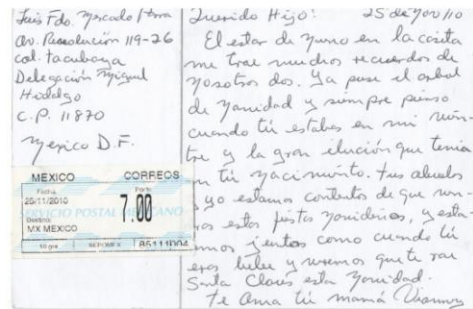 Luis Fdo. Mercado
Av. Revolución 119-26
Col. Tacubaya
Delegación Miguel
Hidalgo
C.P. 11870
Mexico D.F.
MEXICO CORREOS
Fecha Porte
25/11/2010 7.00
SERVICIO POSTAL MEXICANO
Destino
MX MEXICO
10 grs SEPOMEX
Querido Hijo: 25 de Nov/10
El estar de nuevo en la casita
me trae muchos recuerdos de
nosotros dos. Ya puse el arbol
de navidad y siempre pienso
cuando tú estabas en mi vien-
tre y la gran ilución que tenia
en tú nacimiento. tus abuelos
y yo estamos contentos de que ven-
estas fiestas navideñas, y esta
mos juntos como cuando tú
eras bebe y veremos que te trae
Santa Claus esta navidad.
Te Ama tú mamá